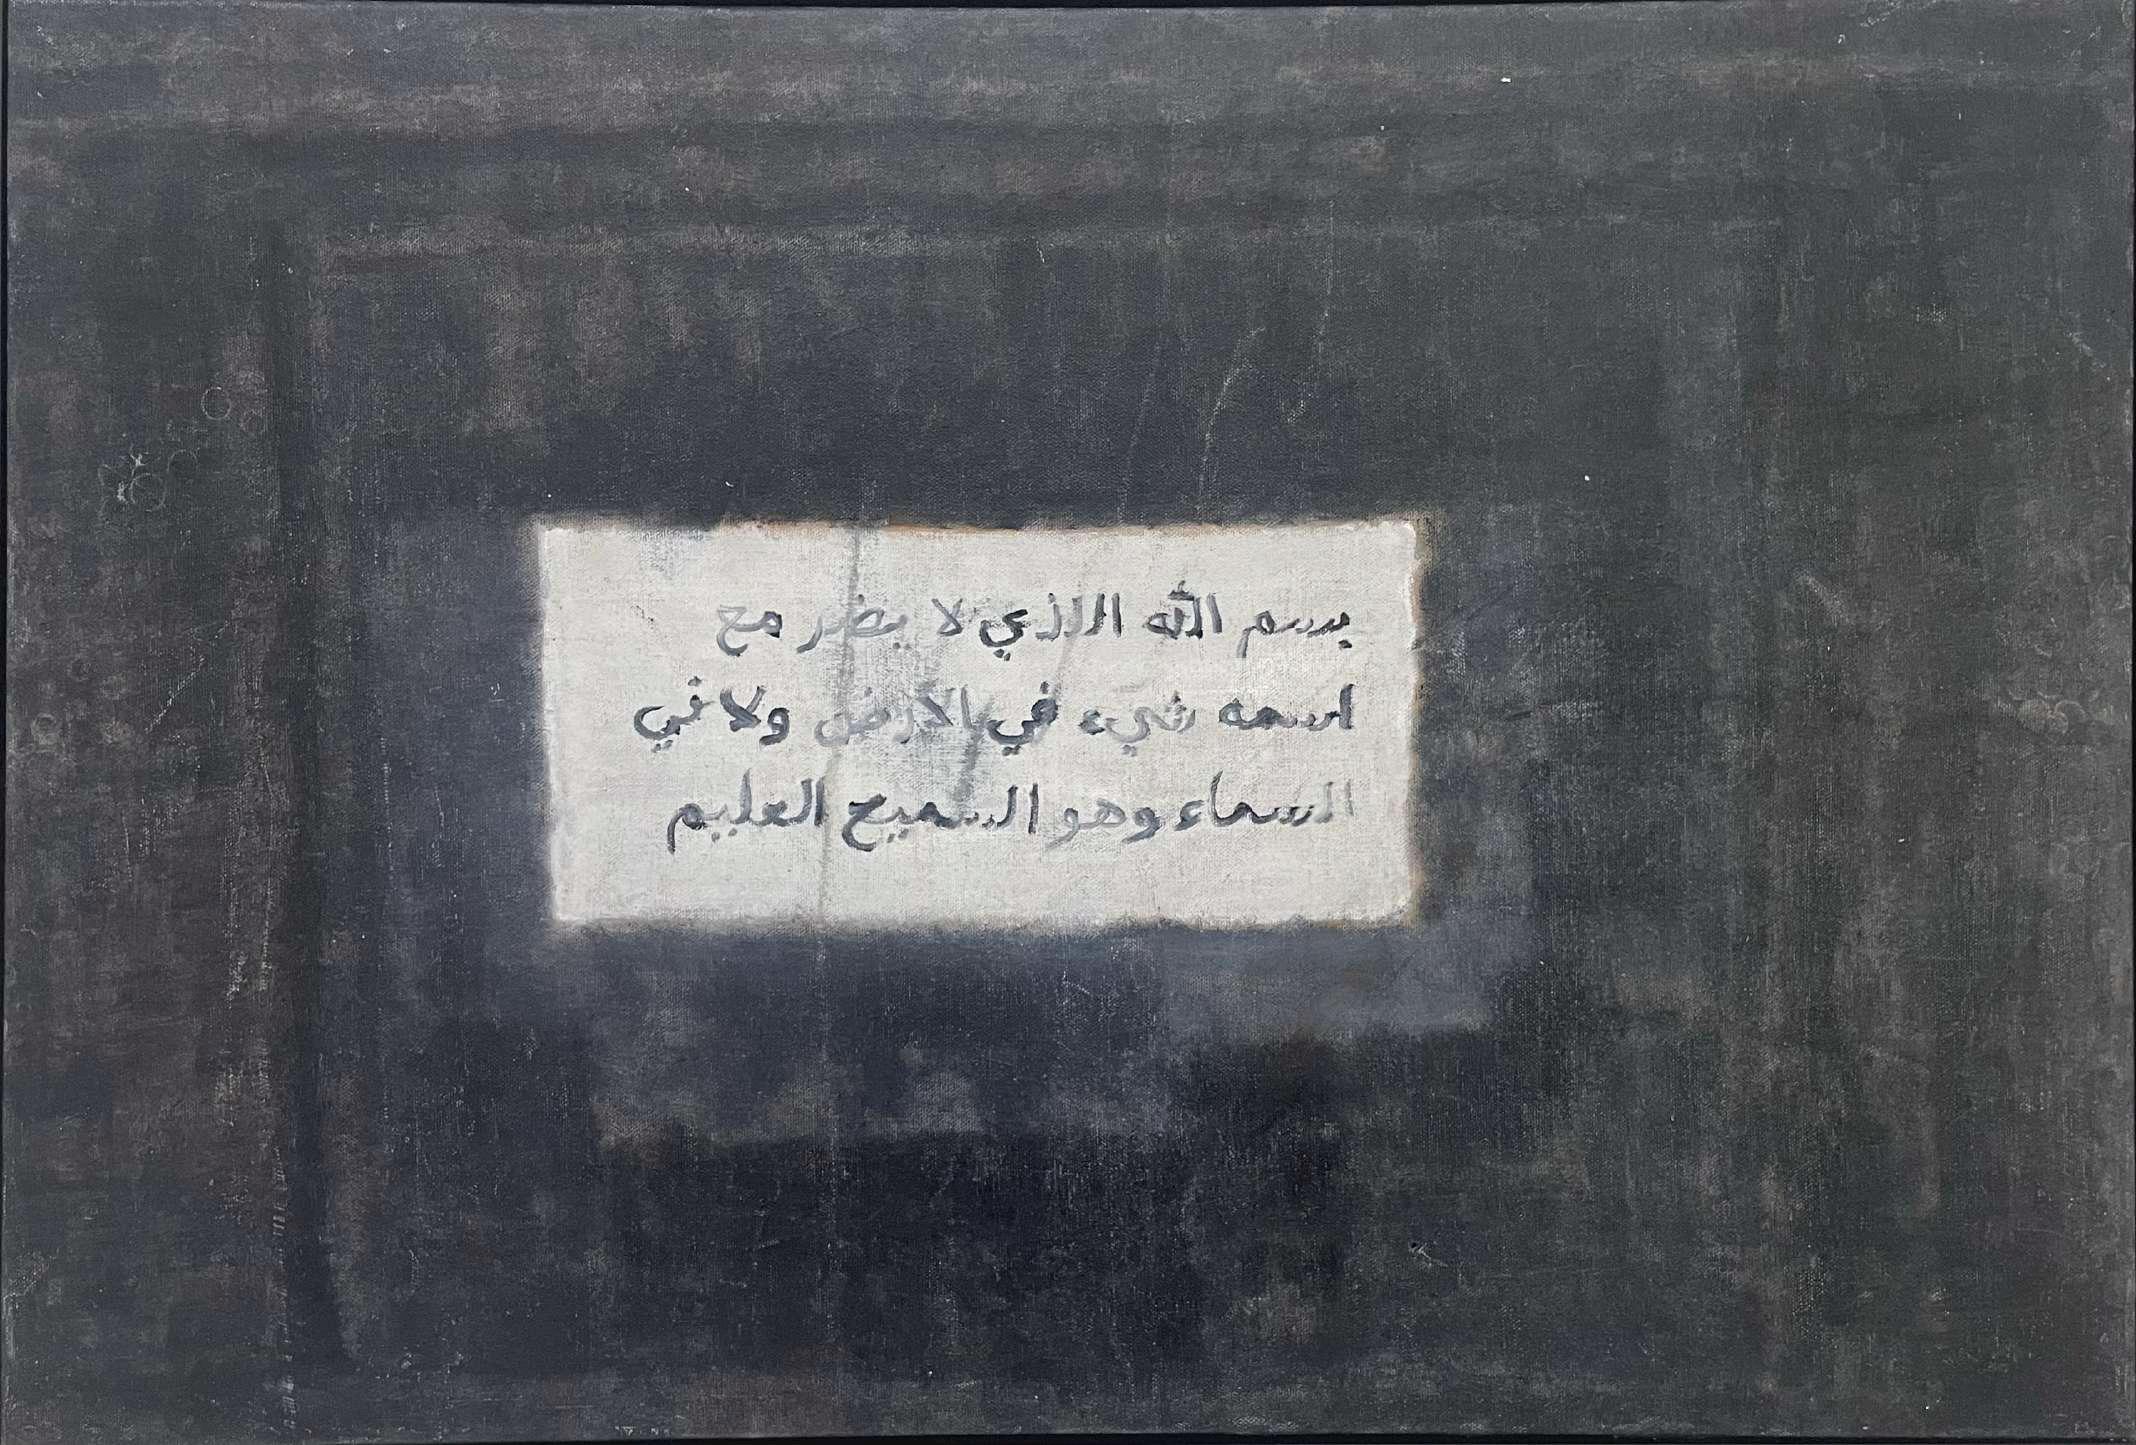 بسم الله اللذي لا يضر مع
اسمه شيء في الارض ولا في
السماء وهو السميع العليم